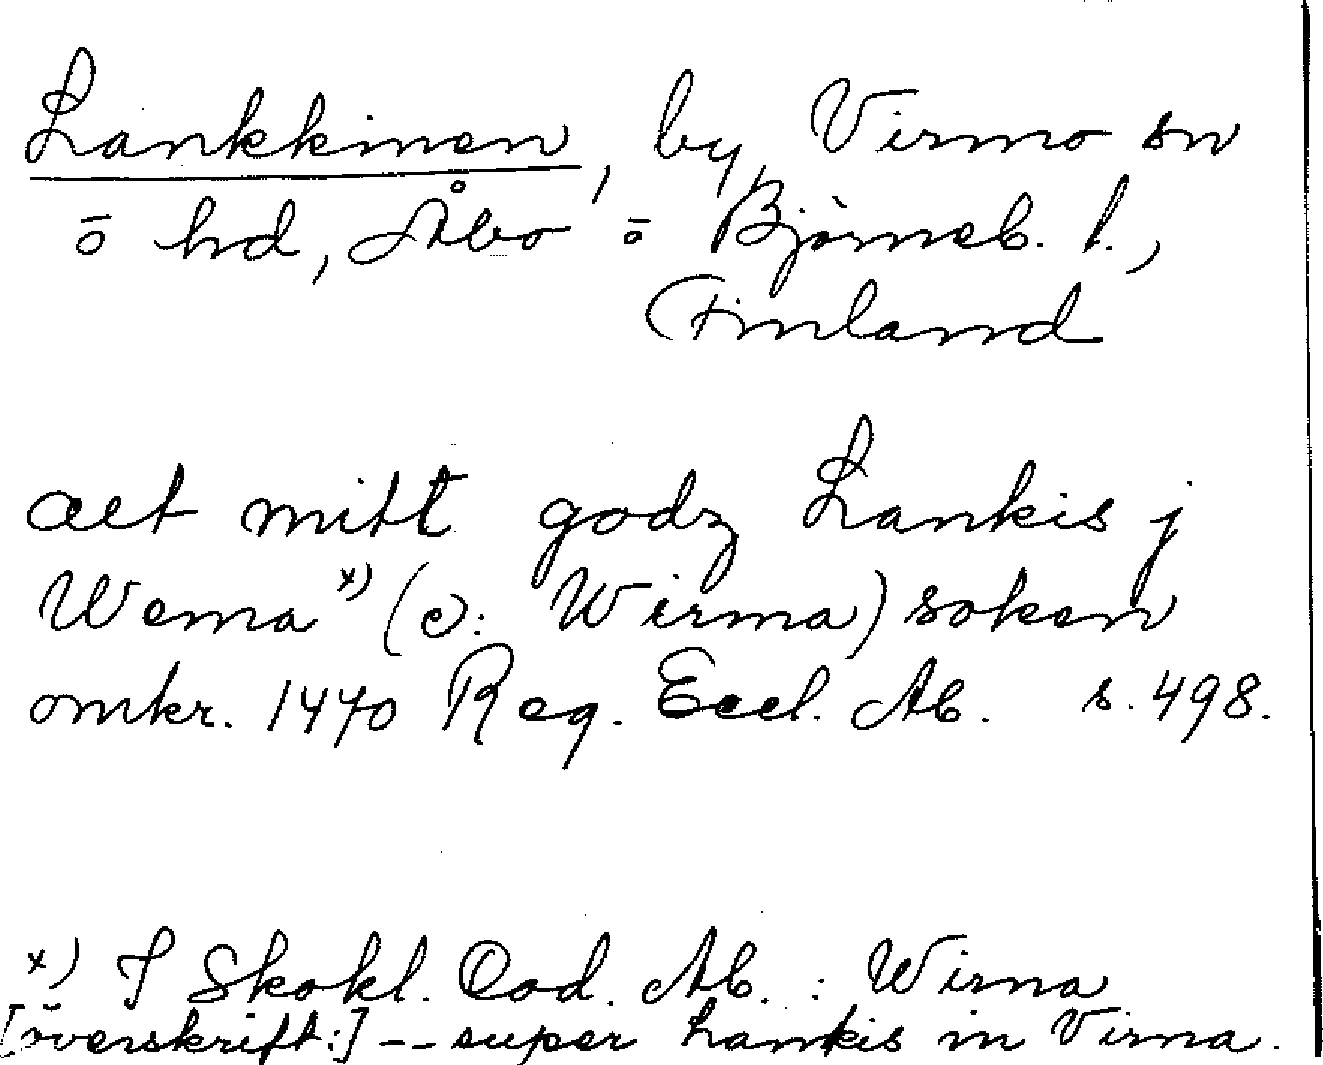 Lankkinen, by, Virmo sn
o̅ hd, Åbo o̅ Björneb. l.,
Finland
alt mitt godz Lankis j
Wema x) (ɔ: Wirma) soken
omkr. 1470 Reg. Eccl. Ab. s. 498.
x) I Skokl. Cod. Ab. : Wirna
[överskrift:] -- super Lankis in Virna.